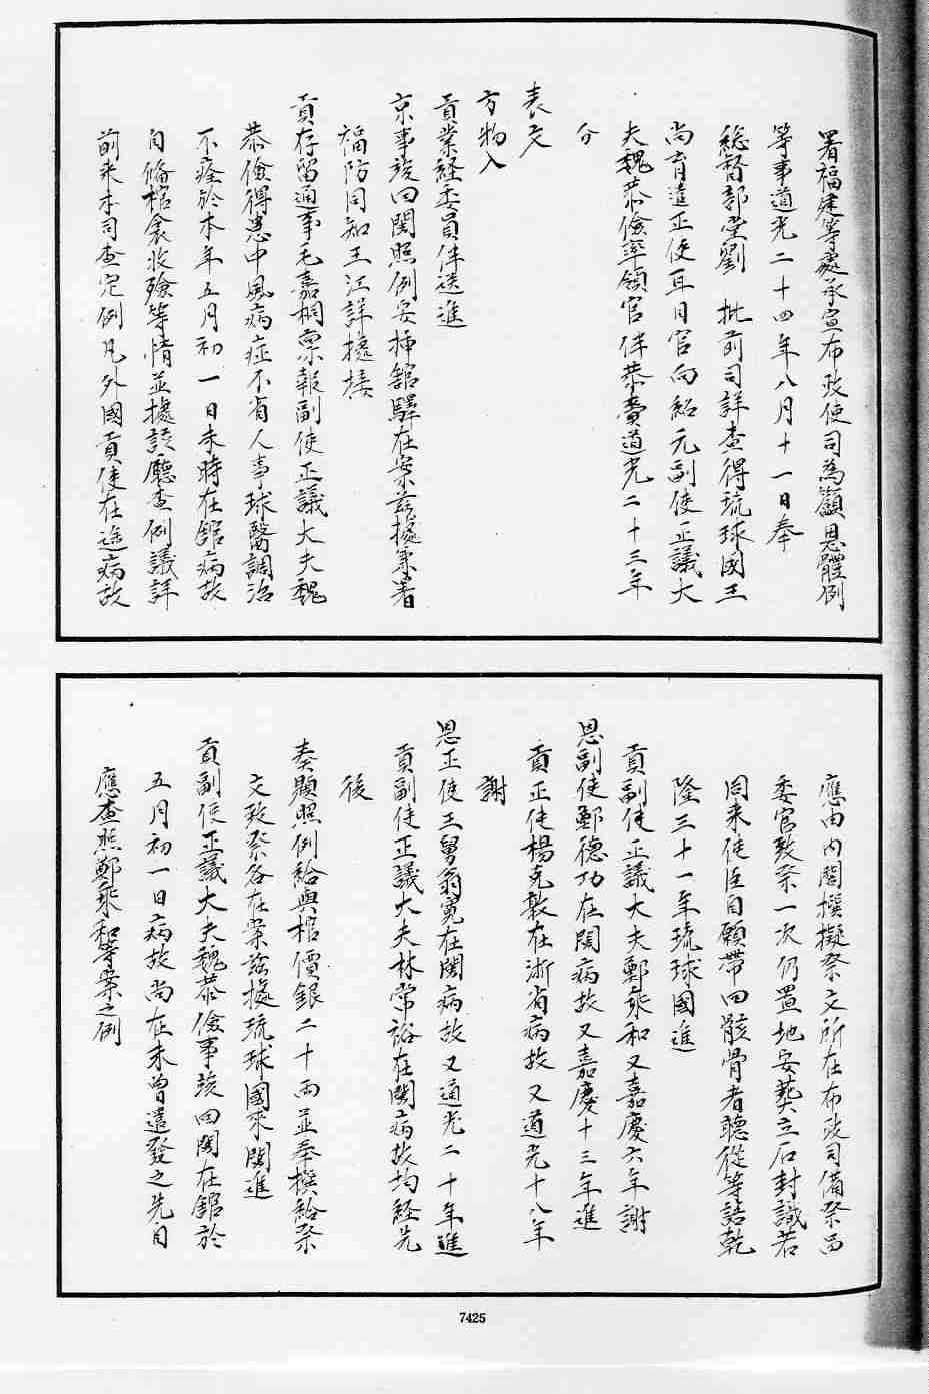 署福建等處承宣布政使司為籲恩體例
等事道光二十四年八月十一日奉
總督部堂劉　批前司詳查得琉球國王
尚育遣正使耳目官向紹元副使正議大
夫魏恭儉率領官伴恭賫道光二十三年
分
表文
方物入
貢業経委員伴送進
京事竣回閩照例安揷舘驛在案茲據兼署
福防同知王江詳據接
貢存留通事毛嘉桐禀報副使正議大夫魏
恭儉得患中風病症不省人事球醫調治
不痊於本年五月初一日未時在舘病故
自俻棺衾收殮等情並據該廳查例議詳
前来本司查定例凡外國貢使在途病故
應由内閣撰擬祭文所在布政司備祭品
委官致祭一次仍置地安葬立石封識若
同来使臣自願帶回骸骨者聽従等語乾
隆三十一年琉球國進
貢副使正議大夫鄭秉和又嘉慶六年謝
恩副使鄭德功在閩病故又嘉慶十三年進
貢正使楊克敦在浙省病故又道光十八年
謝
恩正使王舅翁寛在閩病故又道光二十年進
貢副使正議大夫林常裕在閩病故均経先
後
奏題照例給與棺價銀二十両並奉撰給祭
文致祭各在案茲據琉球國來閩進
貢副使正議大夫魏恭儉事竣回閩在舘於
五月初一日病故尚在未曽遣發之先自
應查照鄭秉和等案之例
7425